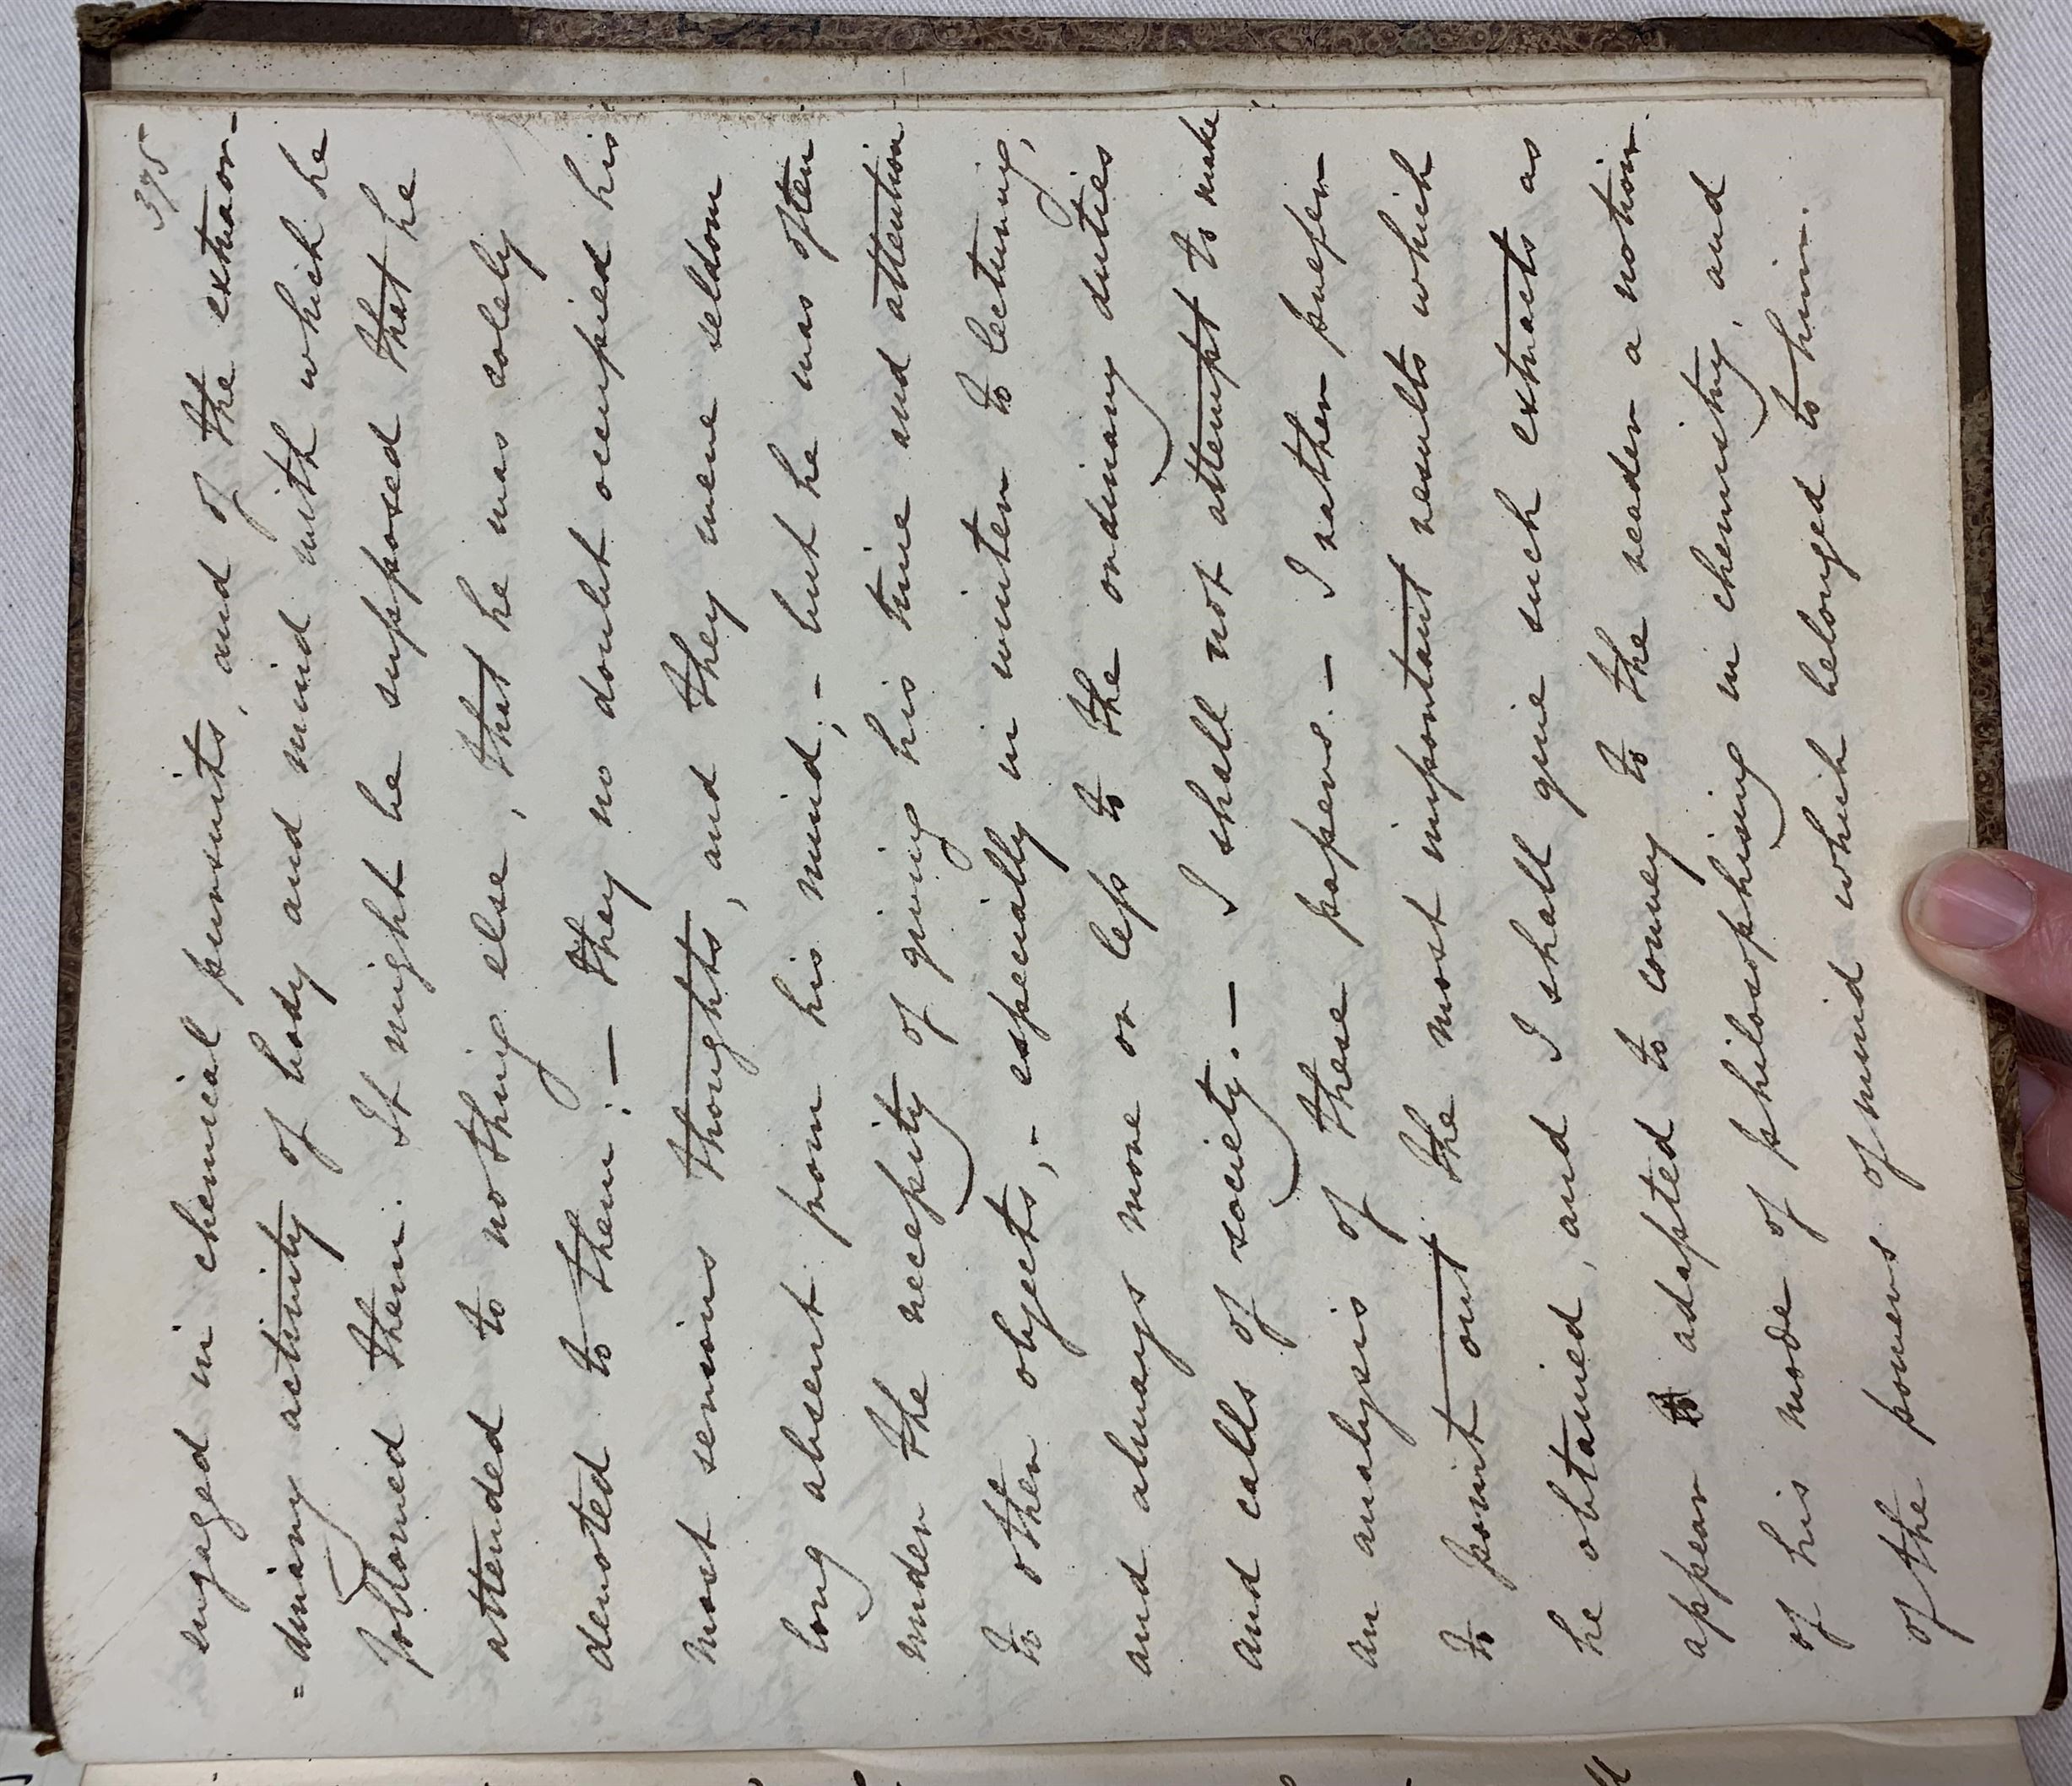 375
engaged in chemical pursuits, and of the extraor-
=dinary activity of body and mind with which he
followed them. It might be supposed that he
attended to nothing else, that he was solely
devoted to them:— they no doubt occupied his
most serious thoughts, and they were seldom
long absent from his mind;- but he was often
under the necessity of giving his time and attention
to other objects,- especially in winter to lecturing,
and always more or less to the ordinary duties
and calls of society.— I shall not attempt to make
an analysis of these papers.- I rather prefer
to point out the most important results which
he obtained, and I shall give such extracts as
appear adapted to convey to the reader a notion
of his mode of philosophising in chemistry, and
of the powers of mind which belonged to him.